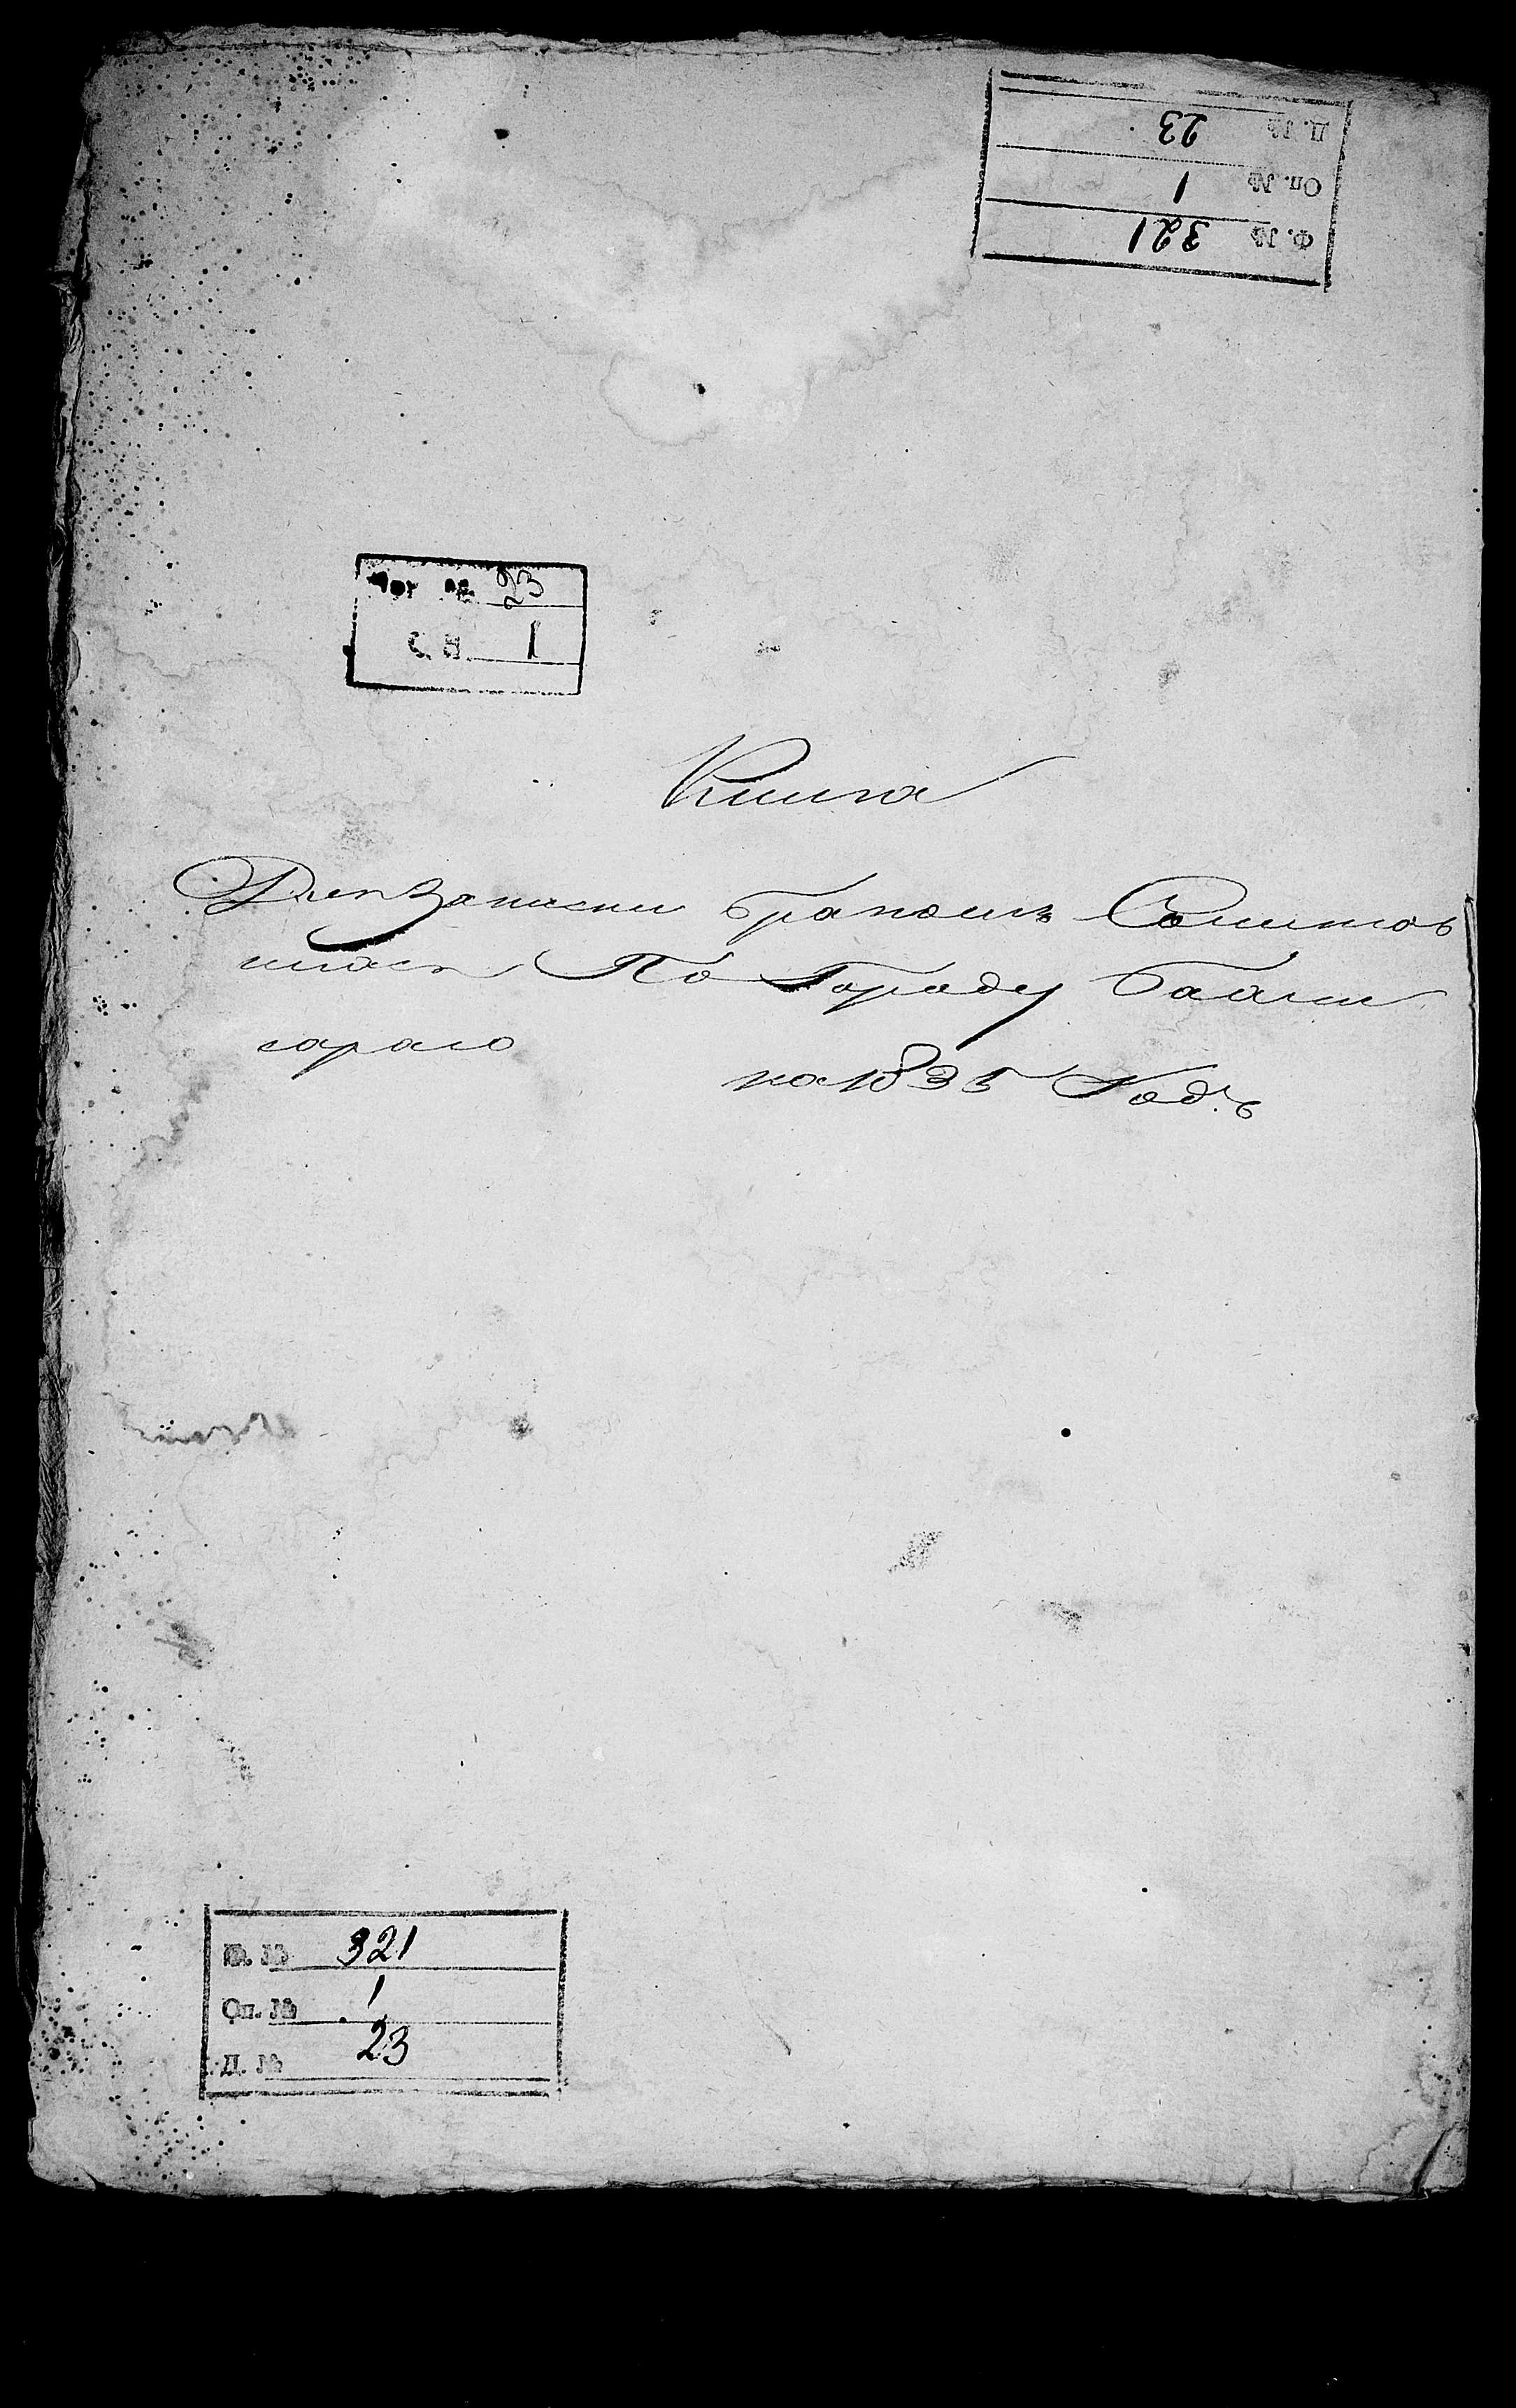 Ф. № 321
Оп. № 1
Д. № 23
23
1
Книга
Для Записки бракомъ
По Городу Бахчи
сараю
на 1835 Годъ
Ф. № 321
Оп. № 1
Д. № 23